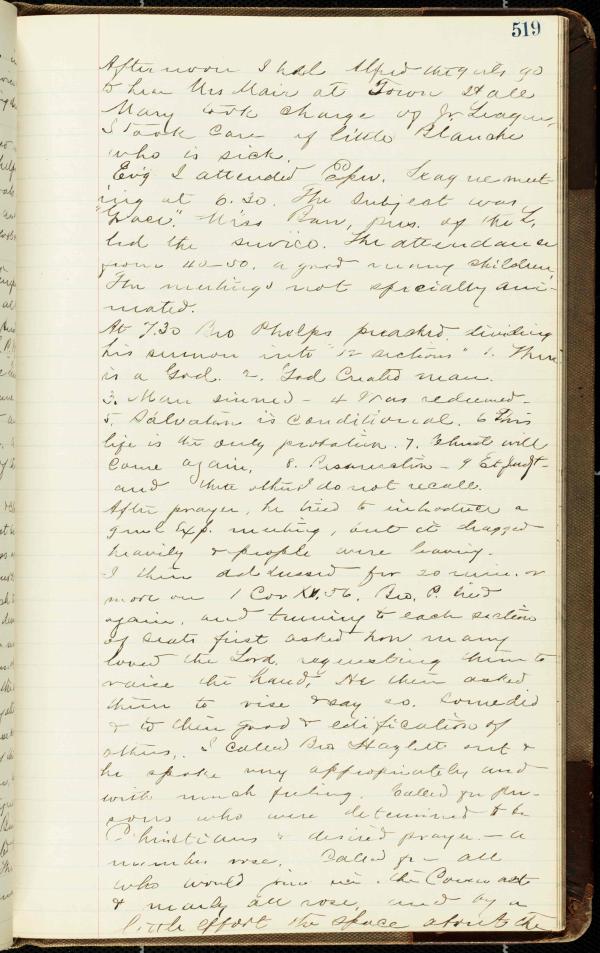 519
Afternoon I had Alfred & the girls go
to hear Mrs Mair at Town Hall
Mary took charge of Jr. League,
I took care of little Blanche
who is sick.
Ev'g I attended Epw. League meet-
ing at 6.30. The subject was
"Grace". Miss Barr, pres. of the L.
led the service. The attendance
from 40-50. a good many children,
The meetings not specially ani-
mated.
At 7.30 Bro Phelps preached dividing
his sermon into "12 sections" 1. There
is a God. 2. God Created man.
3. Man sinned - 4 Was redeemed -
5. Salvation is conditional. 6 This
life is the only probation. 7. Christ will
come again. 8. Resurrection - 9 Et. Judgt -
and three others I do not recall.
After prayer, he tried to introduce a
genl Exp. meeting, but it dragged
heavily & people were leaving.
I then addressed for 20 min. or
more on 1 Cor XV.56. Bro. P. tried
again, and turning to each section
of seats first asked how many
loved the Lord, requesting them to
raise the hand. He then asked
them to rise & say so. Some did
& to their good & edification of
others. I called Bro Hazlett out &
he spoke very appropriately and
with much feeling. Called for per-
sons who were determined to be
Christians & desired prayer - a
number rose. Called for all
who would join in the Covenant
& nearly all rose, and by a
little effort the space about the